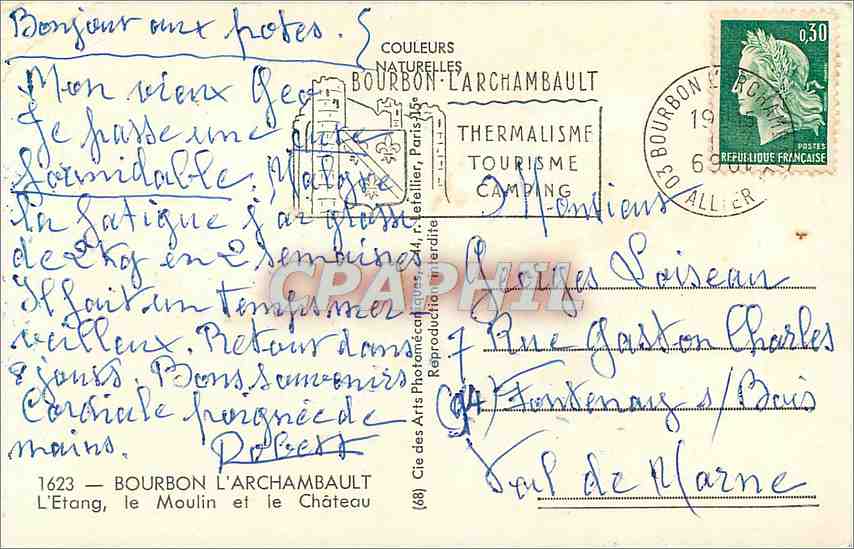 Bonjour aux potes.
Mon vieux Geo
Je passe une cure
formidable. Malgré
la fatigue j'ai
de 2Kg en 2 semaines
Il fait un temps mer
veilleux. Retour dans
8 jours. Bons souvenirs
Cordiale poignée de
mains. Robert
1623 — BOURBON L'ARCHAMBAULT
L'Etang, le Moulin et le Château
COULEURS
NATURELLES
BOURBON-L'ARCHAMBAULT
THERMALISME
TOURISME
CAMPING
03 BOURBON L'ARCHAMBAULT
19
ALLIER
0,30
POSTES
REPUBLIQUE FRANÇAISE
(68) Cie des Arts Photomécaniques, 44, r. Letellier, Paris-15e
Reproduction interdite
CPAPHIL
Monsieur
Georges Loiseau
7 Rue Gaston Charles
(94) Fontenay s/Bois
Val de Marne